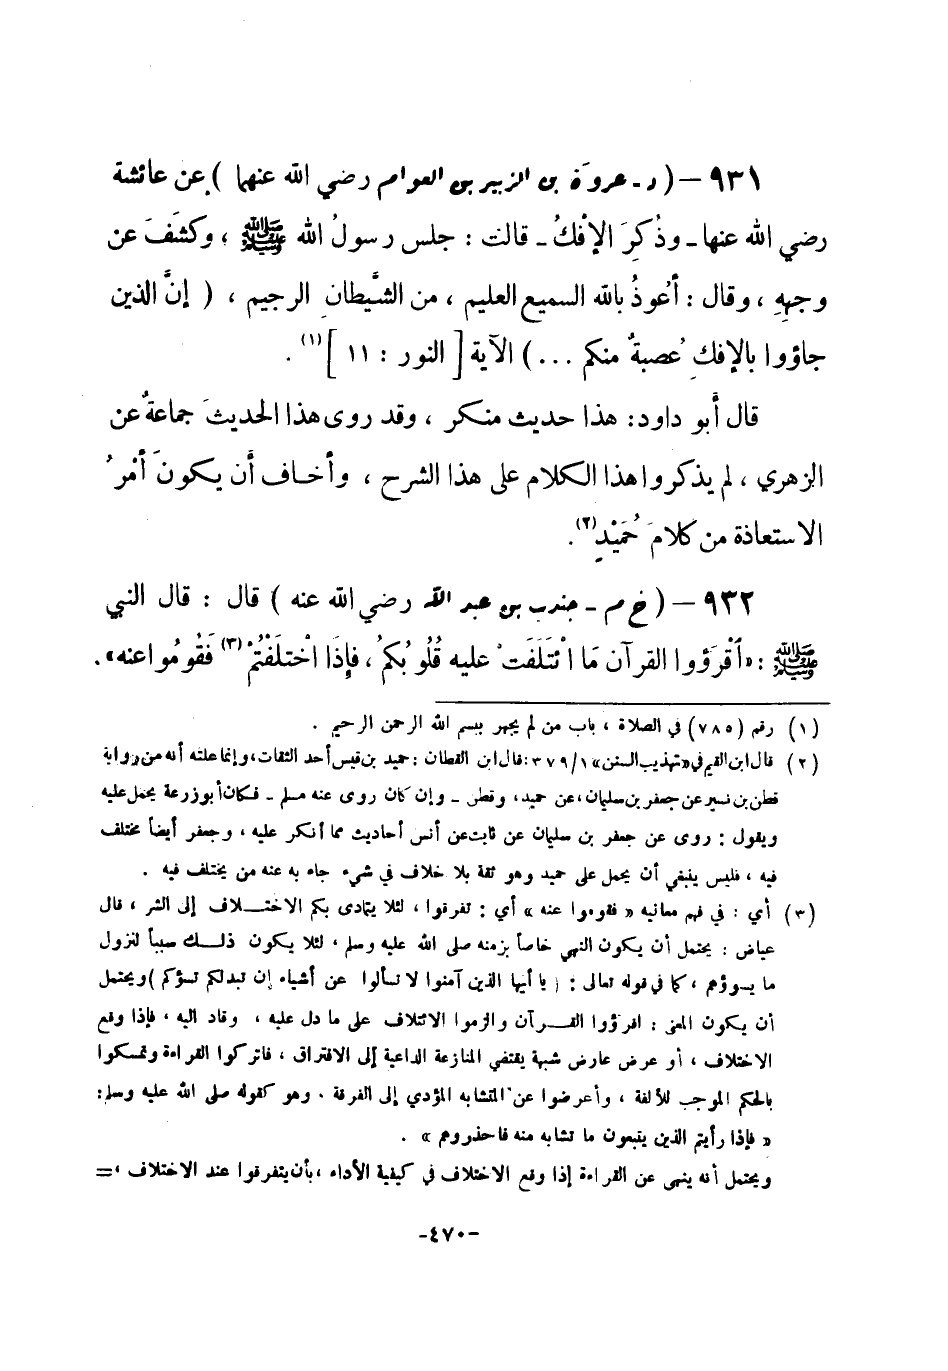 ٩٣١ – ( د - عروة بن الزبير بن العوام رضي الله عنهما ) عن عائشة
رضي الله عنها - وذُكِرَ الإفْكُ - قالت : جلس رسولُ الله ﷺ ، وكشَفَ عن
وجهِهِ ، وقال : أعُوذُ بالله السميع العليم ، من الشَّيطانِ الرجيم ، ( إنَّ الذين
جاؤوا بالإفكِ عُصبةٌ منكم ... ) الآية [ النور : ١١ ](١) .
قال أبو داود: هذا حديث منكر ، وقد روى هذا الحديثَ جماعةٌ عن
الزهري ، لم يذكروا هذا الكلام على هذا الشرح ، وأخاف أن يكونَ أمْرُ
الاستعاذة من كلامَ حُمَيْدٍ(٢).
٩٣٢ – ( خ م - جندب بن عبد الله رضي الله عنه ) قال : قال النبي
ﷺ : «اقْرَؤوا القرآن مَا ائْتَلَفَتْ عليه قُلُوبُكُمْ ، فإِذَا اخْتلَفْتُمْ(٣) فَقُومُوا عنه» .
(١) رقم (٧٨٥) في الصلاة ، باب من لم يجهر ببسم الله الرحمن الرحيم .
(٢) قال ابن القيم في «تهذيب السنن» ٣٧٩/١ : قال ابن القطان : حميد بن قيس أحد الثقات، وإنما علته أنه من رواية
قطن بن نسير عن جعفر بن سليمان، عن حميد، وقطن - وإن كان روى عنه مسلم - فكان أبو زرعة يحمل عليه
ويقول : روى عن جعفر بن سليمان عن ثابت عن أنس أحاديث مما أنكر عليه ، وجعفر أيضاً مختلف
فيه ، فليس ينبغي أن يحمل على حميد وهو ثقة بلا خلاف في شيء جاء به عنه من يختلف فيه .
(٣) أي : في فهم معانيه « فقوموا عنه » أي : تفرقوا ، لئلا يتمادى بكم الاختلاف إلى الشر ، قال
عياض : يحتمل أن يكون النهي خاصاً بزمنه صلى الله عليه وسلم ، لئلا يكون ذلك سبباً لنزول
ما يسوؤهم ، كما في قوله تعالى : ( يا أيها الذين آمنوا لا تسألوا عن أشياء إن تبدلكم تسؤكم ) ويحتمل
أن يكون المعنى : اقرؤوا القرآن والزموا الائتلاف على ما دل عليه ، وقاد اليه ، فإذا وقع
الاختلاف ، أو عرض عارض شبهة يقتضي المنازعة الداعية إلى الافتراق ، فاتركوا القراءة وتمسكوا
بالحكم الموجب للألفة ، وأعرضوا عن المتشابه المؤدي إلى الفرقة . وهو كقوله صلى الله عليه وسلم:
« فإذا رأيتم الذين يتبعون ما تشابه منه فاحذروهم » .
ويحتمل أنه ينهى عن القراءة إذا وقع الاختلاف في كيفية الأداء ، بأن يتفرقوا عند الاختلاف ، =
-٤٧٠-